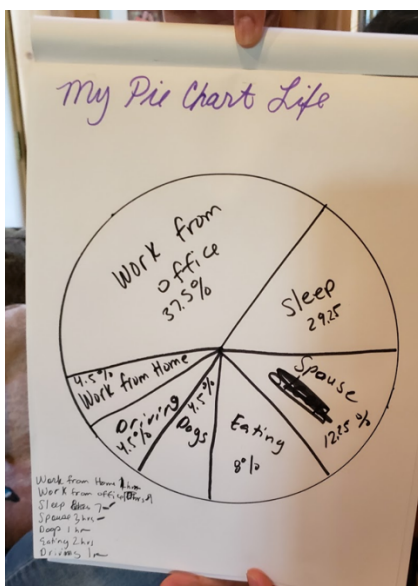 My Pie Chart Life
Work from
office
37.5%
Sleep
29.25
Spouse
12.25%
Eating
8%
Dogs
4.5%
Driving
4.5%
Work from Home
4.5%
Work from Home 1 hr
Work from office
Sleep 7
Spouse 3 hrs
Dogs 1 hr
Eating 2 hrs
Driving 1